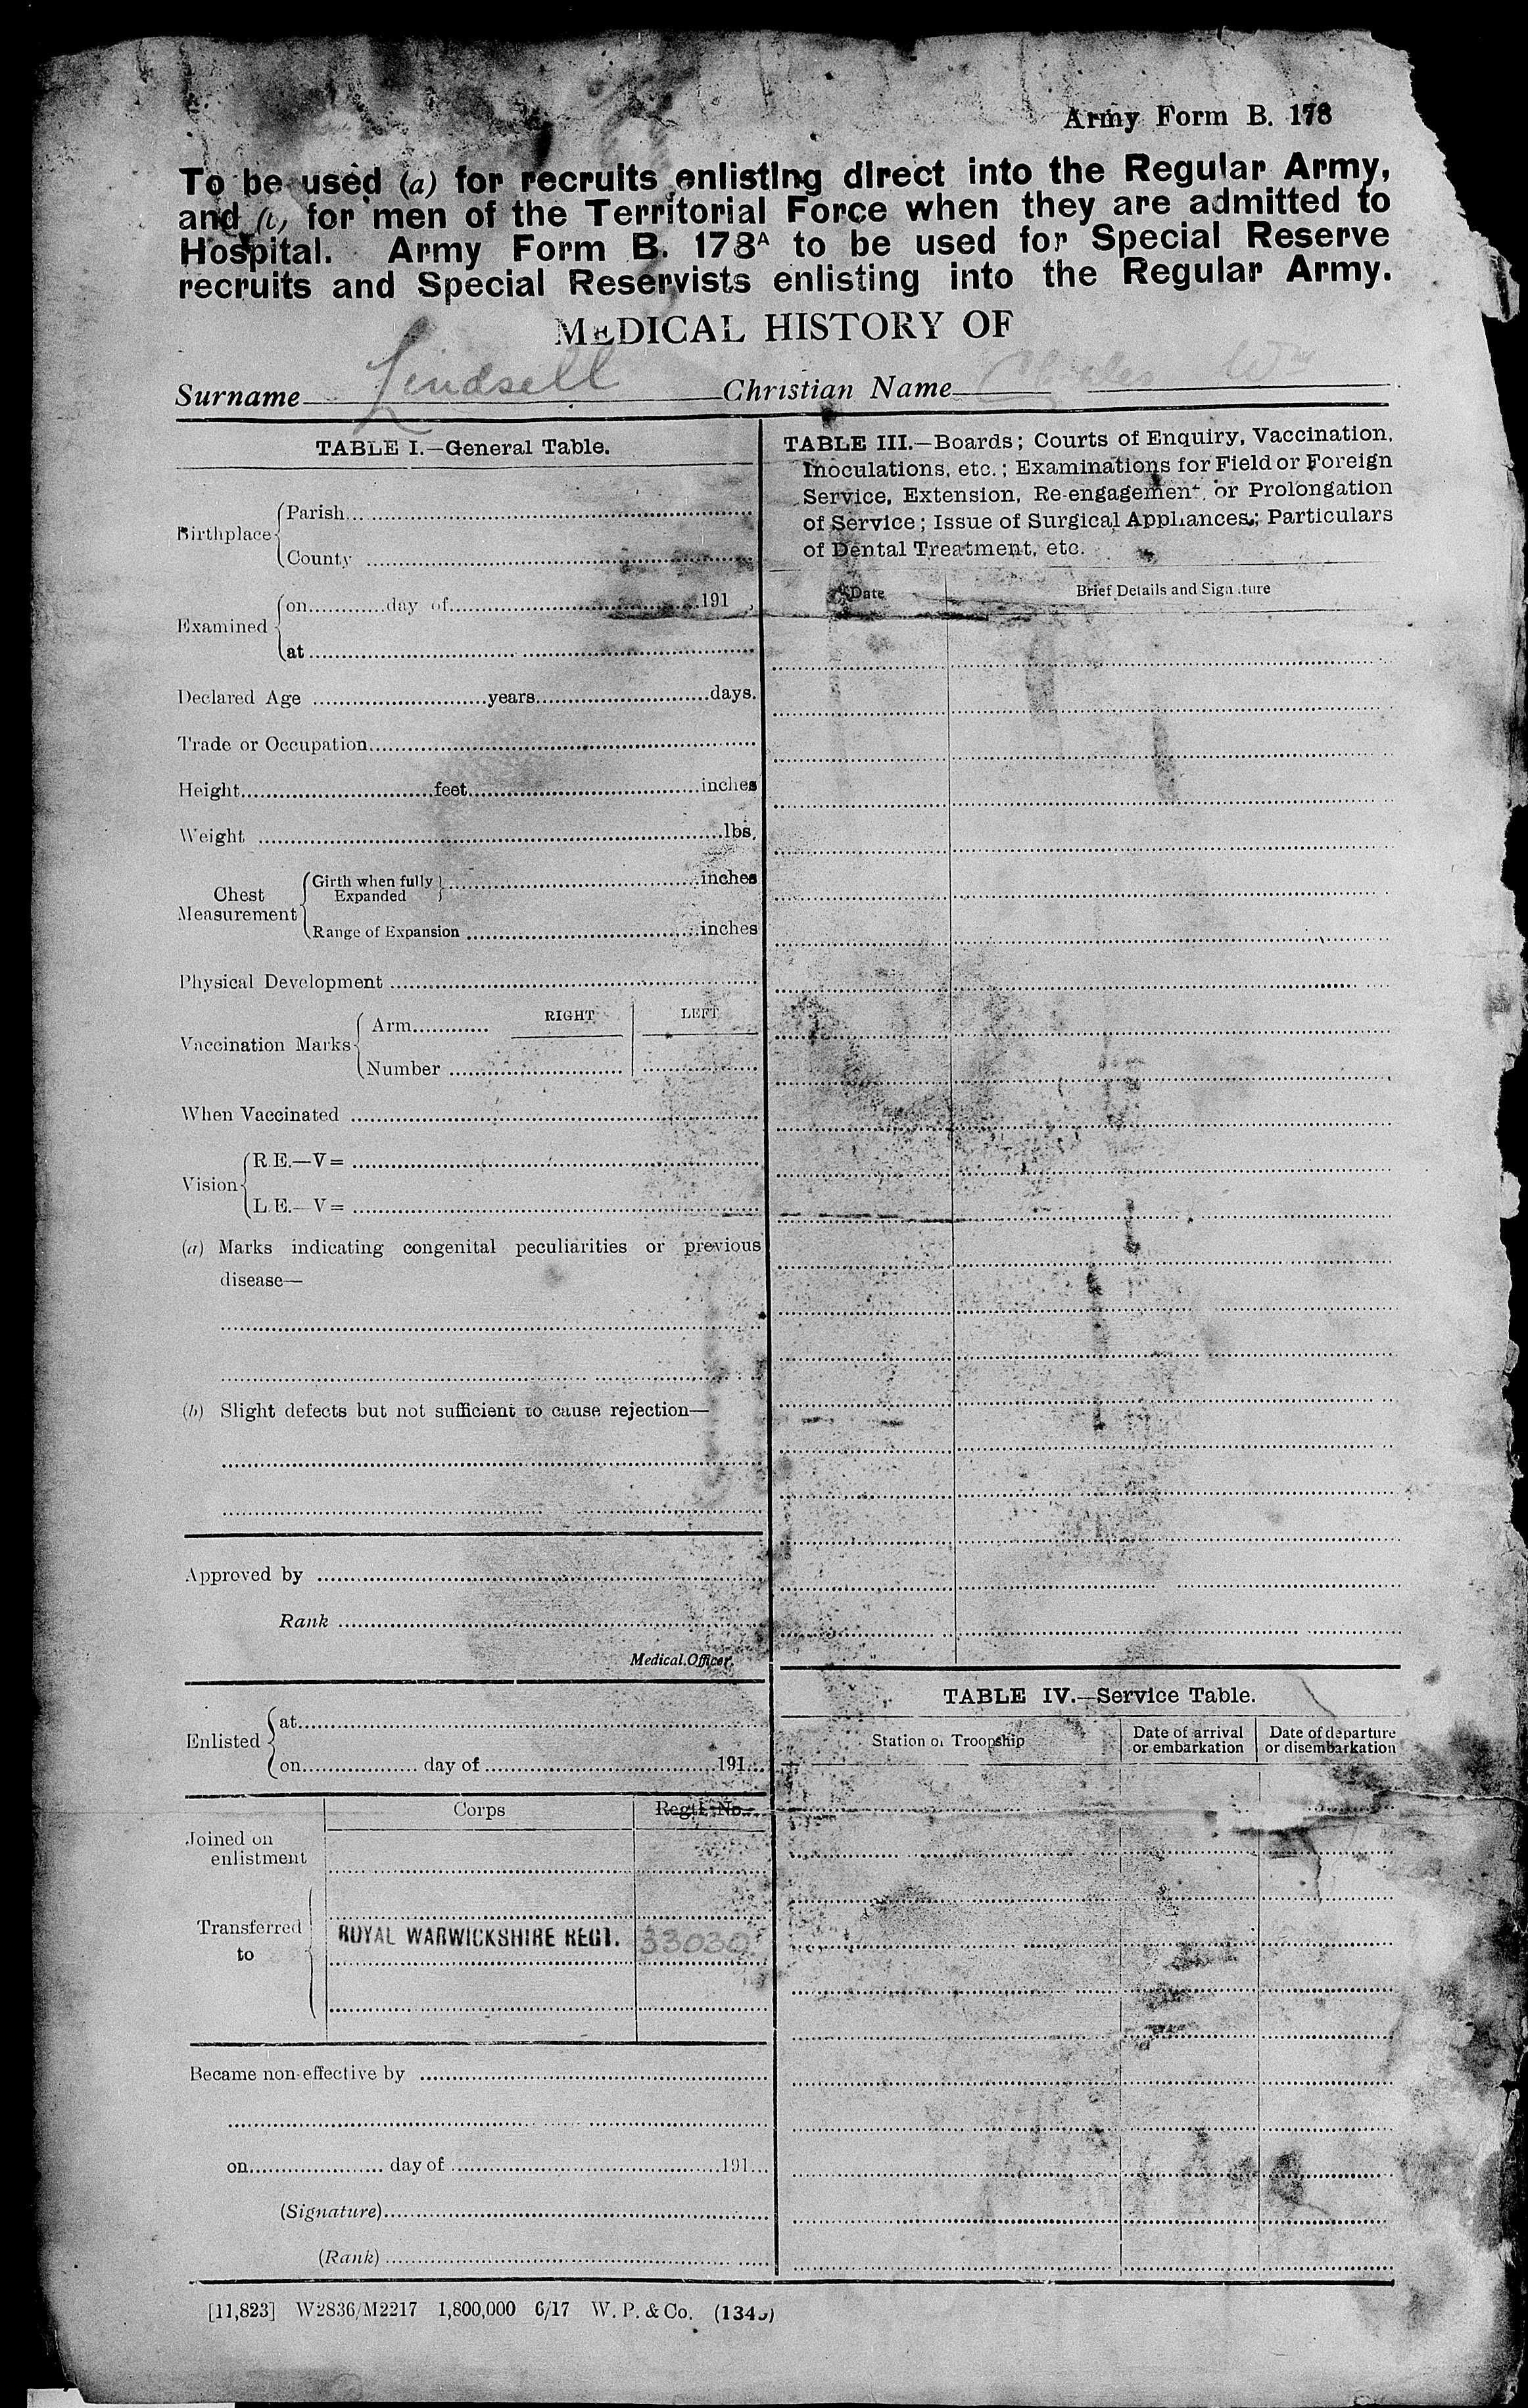 Army Form B. 178
To be used (a) for recruits enlisting direct into the Regular Army,
and (b) for men of the Territorial Force when they are admitted to
Hospital. Army Form B. 178A to be used for Special Reserve
recruits and Special Reservists enlisting into the Regular Army.
MEDICAL HISTORY OF
Surname Lindsell Christian Name Charles Wm
TABLE I.—General Table.
Birthplace
Parish
County
Examined
on day of 191
at
Declared Age years days.
Trade or Occupation
Height feet inches
Weight lbs.
Chest Measurement
Girth when fully Expanded inches
Range of Expansion inches
Physical Development
RIGHT LEFT
Vaccination Marks
Arm
Number
When Vaccinated
Vision
R.E.—V=
L.E.—V=
(a) Marks indicating congenital peculiarities or previous
disease—
(b) Slight defects but not sufficient to cause rejection—
Approved by
Rank
Medical Officer.
Enlisted
at
on day of 191
Corps Regtl. No.
Joined on
enlistment
Transferred
to
ROYAL WARWICKSHIRE REGT. 33030
Became non-effective by
on day of 191
(Signature)
(Rank)
TABLE III.—Boards; Courts of Enquiry, Vaccination,
Inoculations, etc.; Examinations for Field or Foreign
Service, Extension, Re-engagement, or Prolongation
of Service; Issue of Surgical Appliances; Particulars
of Dental Treatment, etc.
Date Brief Details and Signature
TABLE IV.—Service Table.
Station or Troopship
Date of arrival
or embarkation
Date of departure
or disembarkation
[11,823] W2836/M2217 1,800,000 6/17 W. P. & Co.